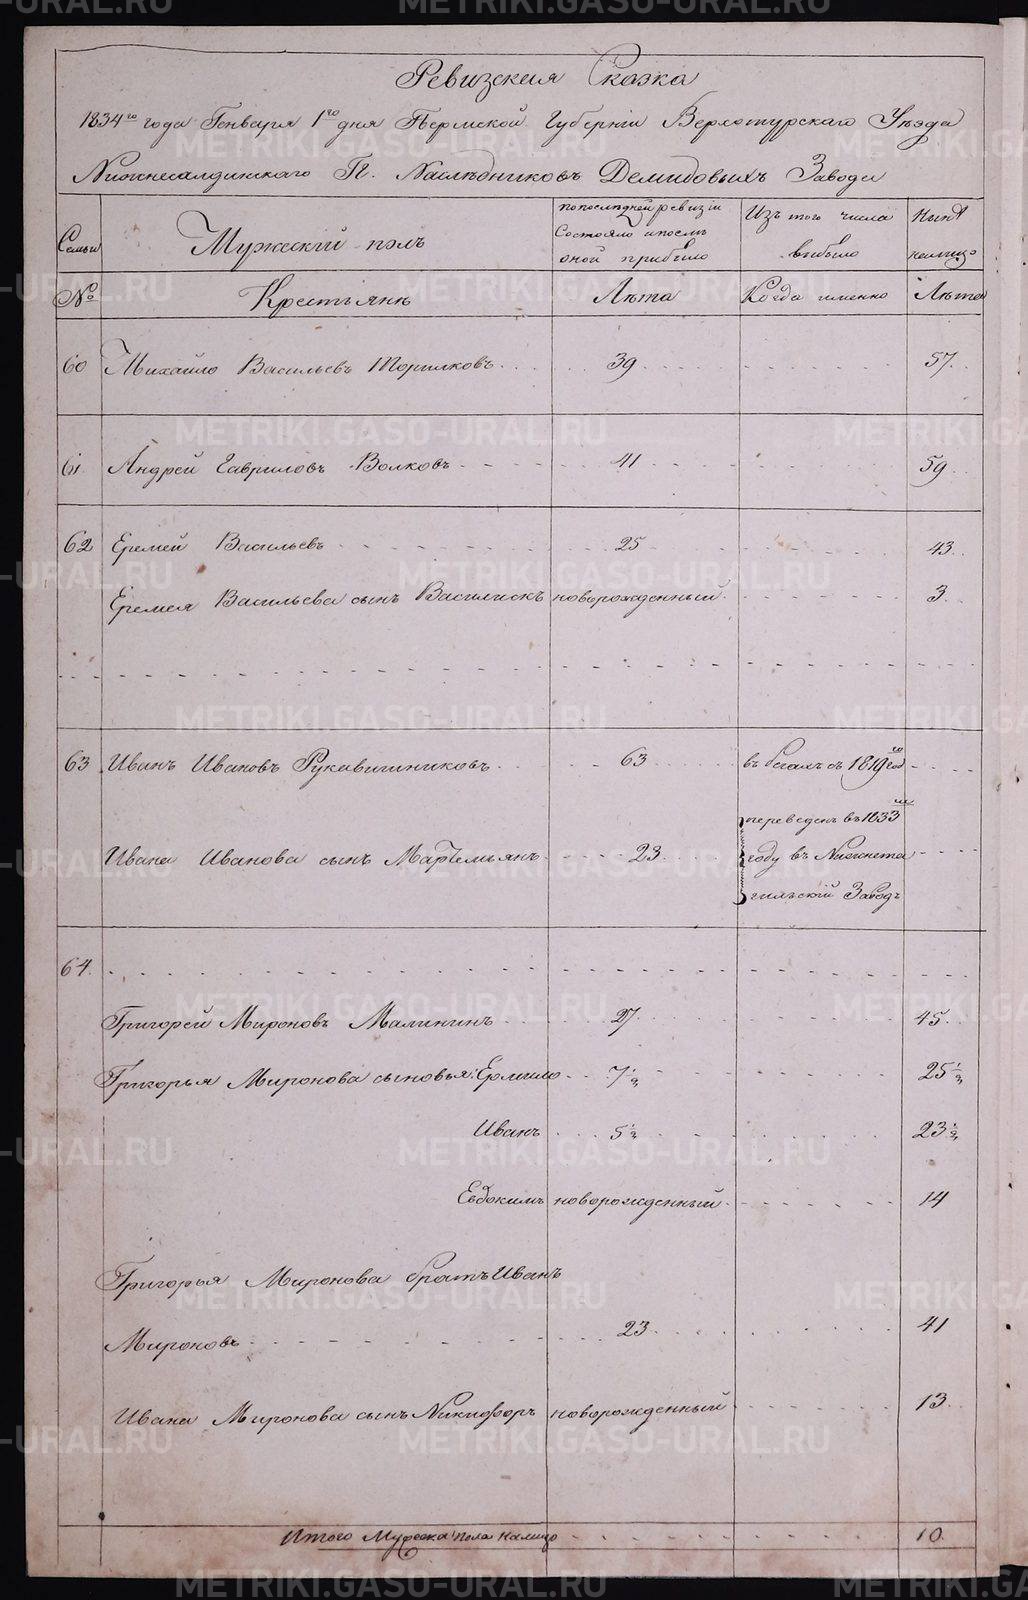 Ревизская Сказка
1834го года Генваря 1го дня Пермской Губернiи Верхотурскаго Уѣзда
Нижнесалдинскаго Гг. Наслѣдниковъ Демидовыхъ Завода
Семьи
Мужескiй полъ
по последней ревизiи
Состояло и после
оной прибыло
Изъ того числа
выбыло
Нынѣ
налицо
№ Крестьяне Лѣта Когда именно Лѣта
60 Михайло Васильевъ 39 57
61 Андрей Гавриловъ Волковъ 41 59
62 Еремей Васильевъ 25 43
Еремея Васильева сынъ Василискъ новорожденный 3
63 Иванъ Ивановъ Рукавишниковъ 63 въ бегахъ съ 1819го год
Ивана Иванова сынъ Мартемьянъ 23
переведенъ въ 1833м
году въ Нижнета
гильскiй Заводъ
64
Григорей Мироновъ Малининъ 27 45
Григорья Миронова сыновья: Ермило 7½ 25½
Иванъ 5½ 23½
Евдокимъ новорожденный 14
Григорья Миронова братъ Иванъ
Мироновъ 23 41
Ивана Миронова сынъ Никифоръ новорожденный 13
Итого Мужеска пола налицо 10
METRIKI.GASO-URAL.RU